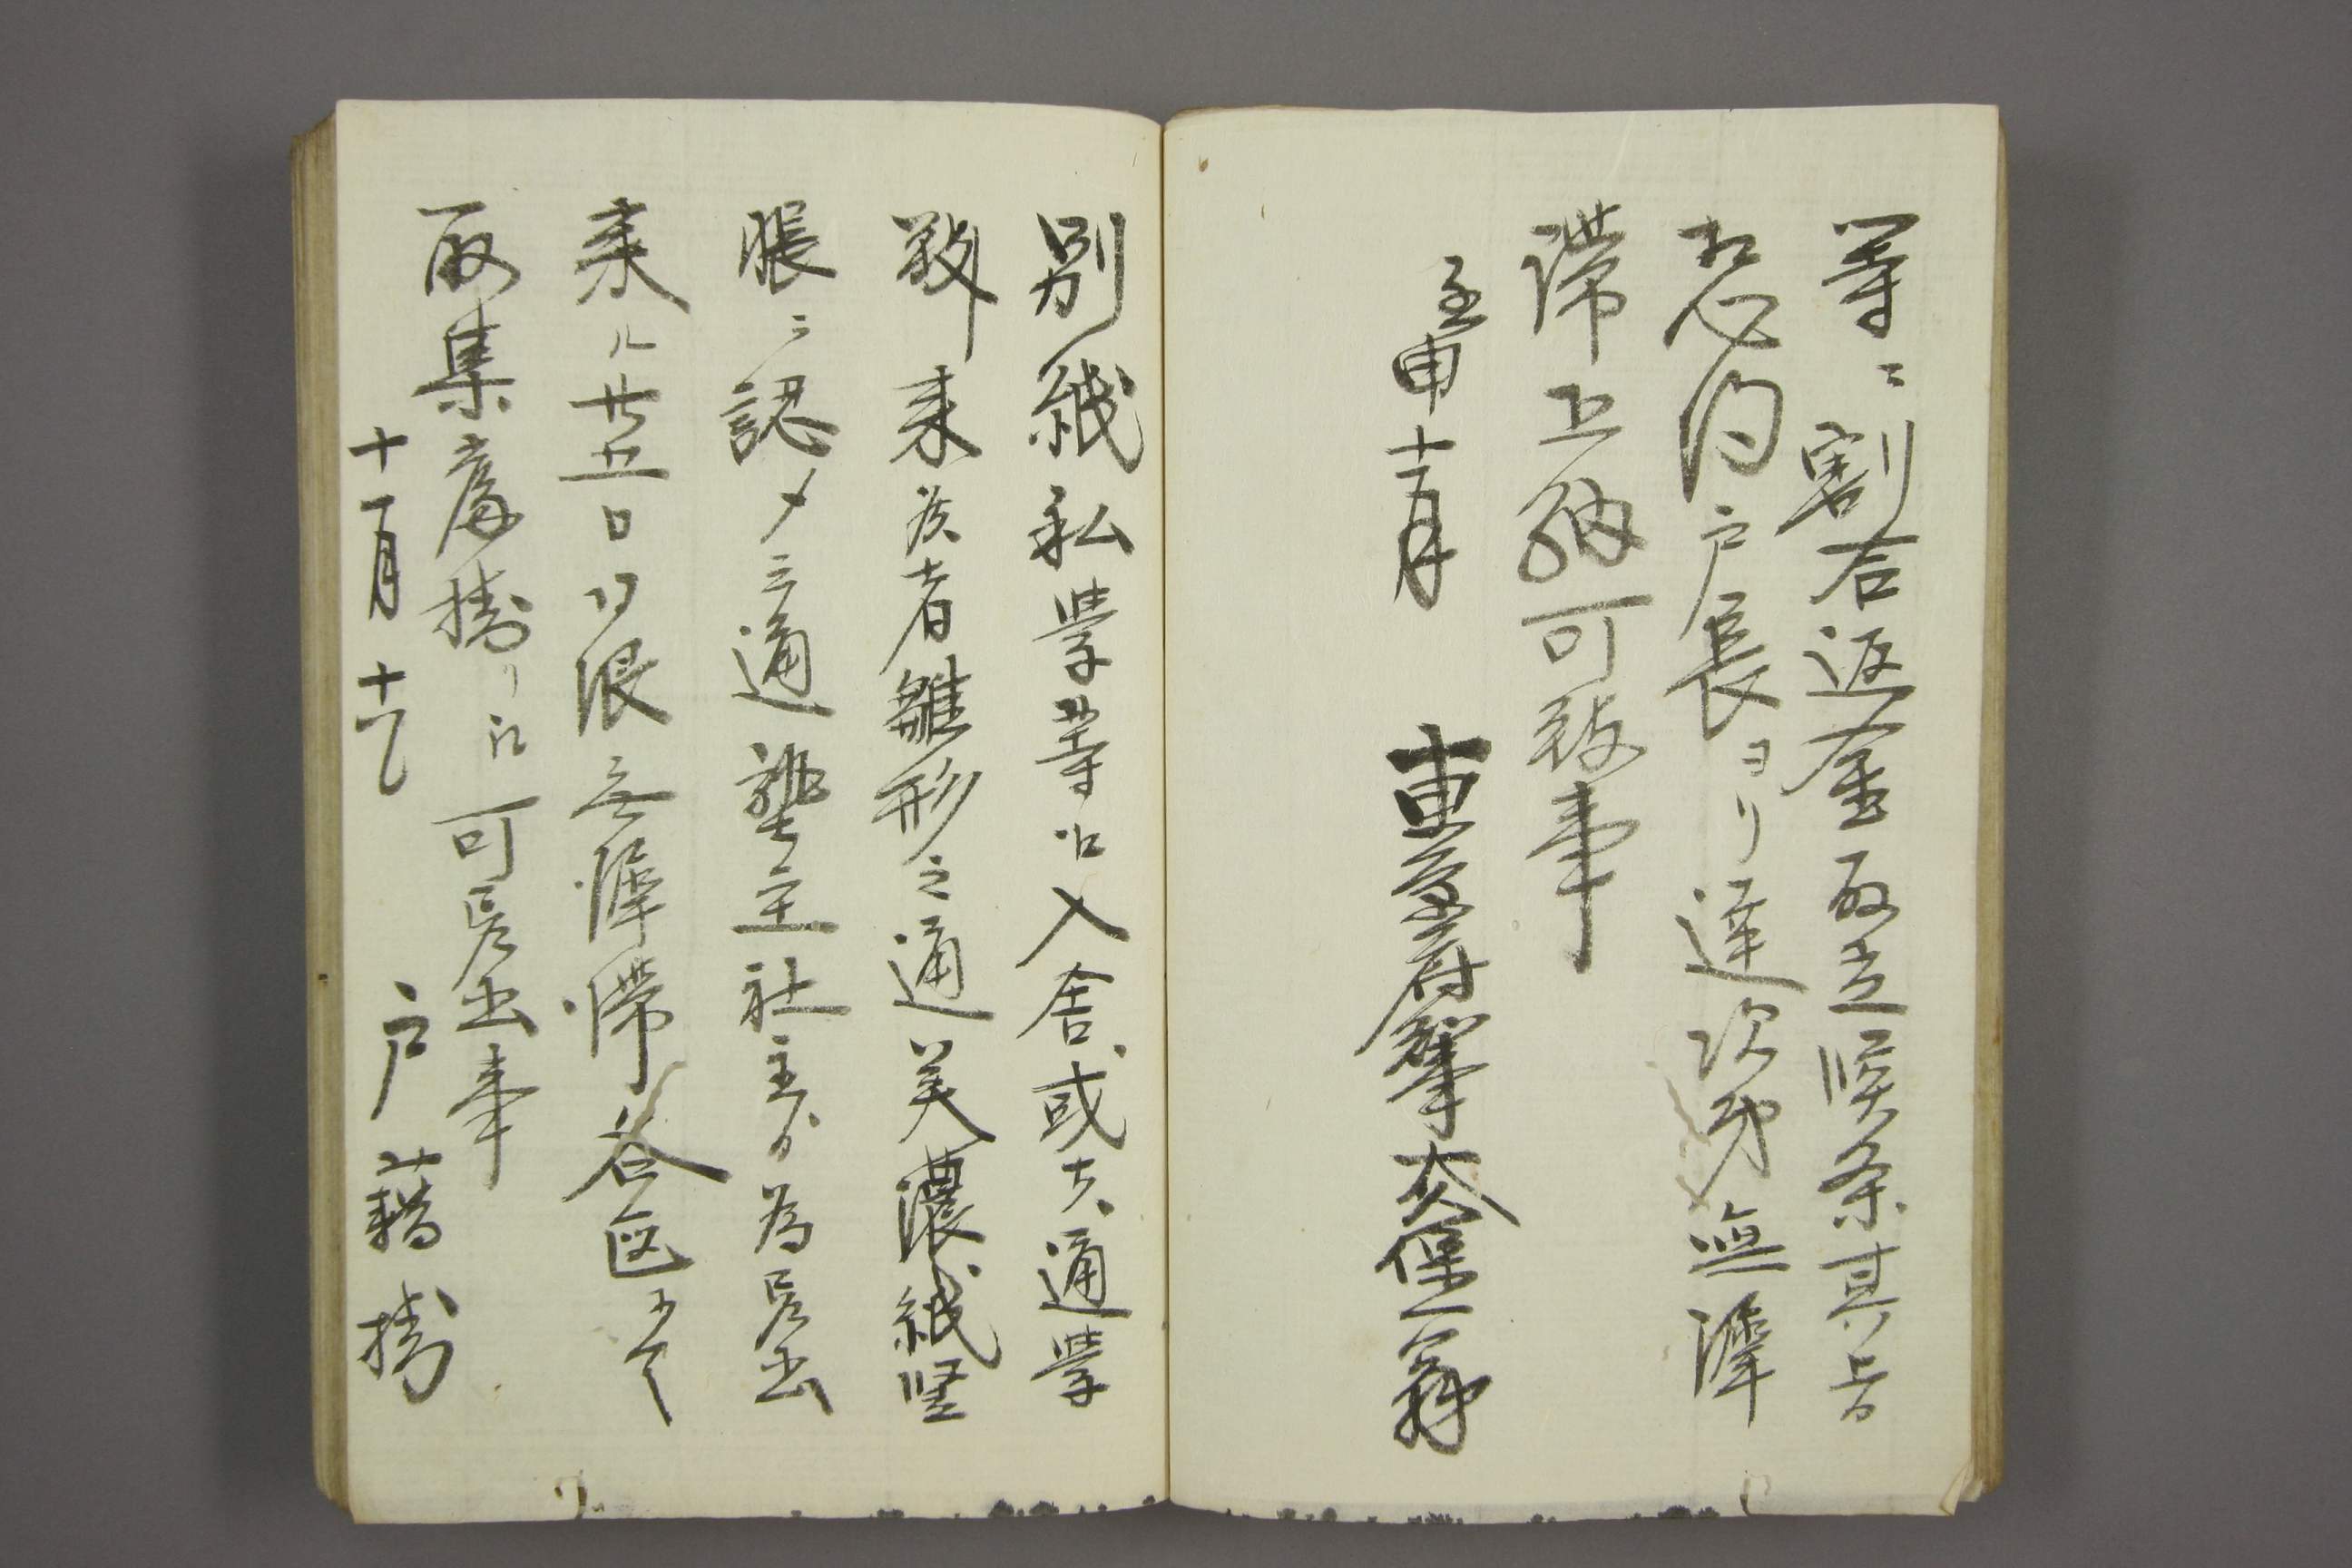 等ニ割合返金取立候条其旨
相心得戸長ヨリ達次第無渾
滞上納可致事
壬申十一月 東京府知事大久保一翁
別紙私学等江入舎或ハ通学
致来候者雛形之通美濃紙竪
帳ニ認メ三通塾主社主ゟ為差出
来ル廿五日限無渾滞各区ニ而
取集庶掛リ江可差出事
十一月十七日 戸籍掛